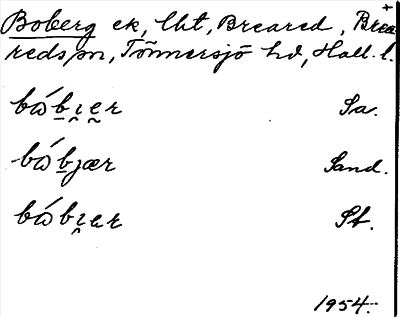 Boberg ek, lht, Breared, Brea-
redspn, Tönnersjö hd, Hall. l.
bǻb̠ı̯e̠r Sa.
bǻb̠jær Sand.
bǻbı̯er St.
1954.